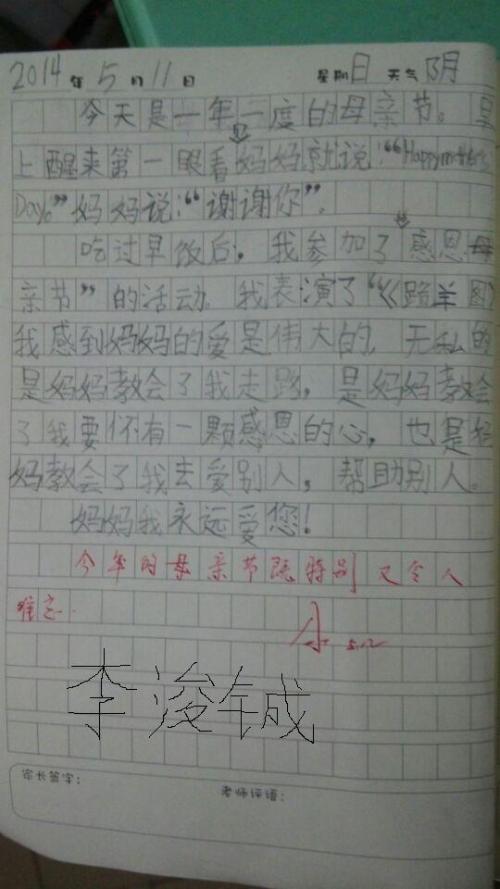 2014年5月11日 星期日 天气阴
今天是一年一度的母亲节。早
上醒来第一眼看妈妈就说:“Happy mother's
Day。”妈妈说:“谢谢你”。
吃过早饭后,我参加了感恩母
亲节”的活动。我表演了“《跪羊图
我感到妈妈的爱是伟大的,无私的
是妈妈教会了我走路,是妈妈教会
了我要怀有一颗感恩的心,也是妈
妈教会了我去爱别人,帮助别人。
妈妈我永远爱您!
今年的母亲节既特别又令人
难忘.
5.12
李浚铖
家长签字:
老师评语: